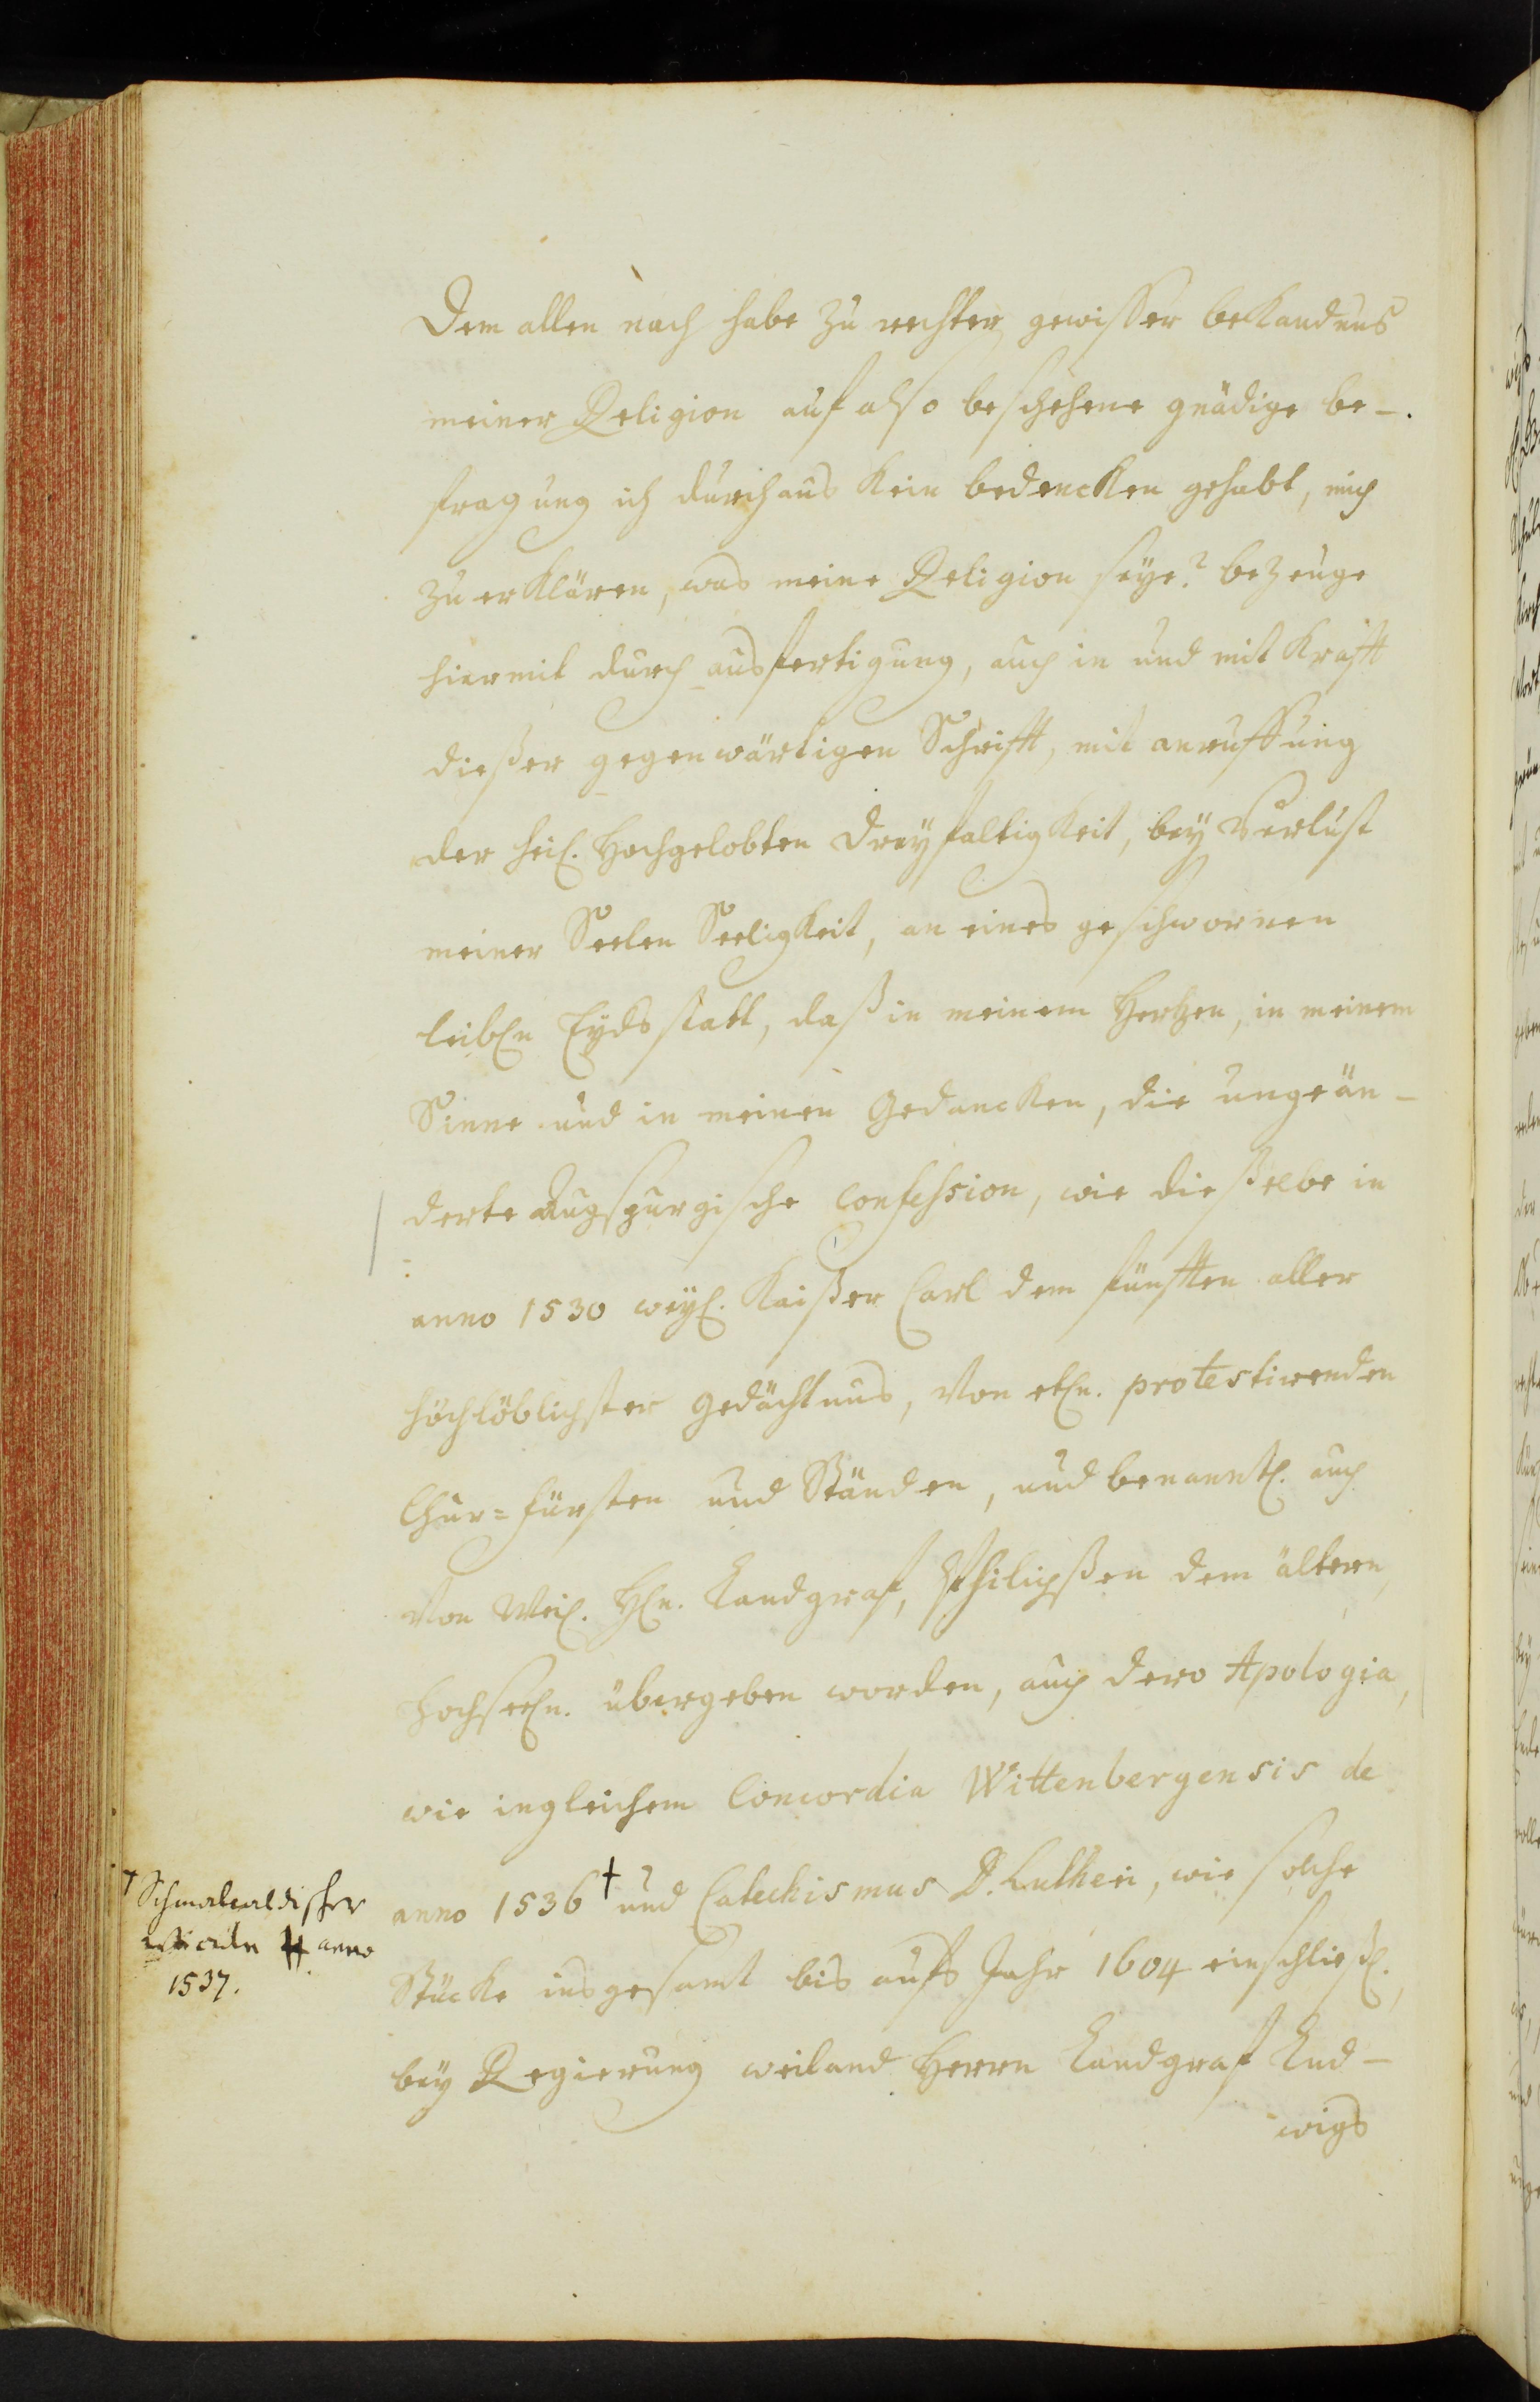 Dem allen nach habe zu rechter gewisser bekandnus
meiner Religion auf also beschehene gnädige be-
fragung ich durchaus kein bedencken gehabt, mich
zu erklären, was meine Religion seye? bezeuge
hiermit durch ausfertigung, auch in und mit Krafft
dießer gegenwärtigen Schrifft, mit anruffung
der heil. Hochgelobten Dreyfaltigkeit, bey Verlust
meiner Seelen Seeligkeit, an eines geschwornen
leibln Eydsstatt, daß in meinem Hertzen, in meinem
Sinne und in meinen Gedancken, die ungeän-
derte Augspurgische Confession, wie dießelbe in
anno 1530 weyl. Kaißer Carl dem fünfften aller
höchlöblichster gedächtnus, von etln. protestirenden
Chur=Fürsten und Ständen, und benanntl. auch
von Weil. Hln. Landgraf, Philipßen dem ältern,
Hochseeln. übergeben worden, auch dero Apologia,
wie ingleichem Concordia Wittenbergensis de
anno 1536 † und Catechismus D. Lutheri, wie solche
Stücke insgesamt bis aufs Jahr 1604 einschließl.,
bey Regierung weiland Herrn Landgraf Lud-
wigs
† Schmalcaldischer
Articuln anno
1537.